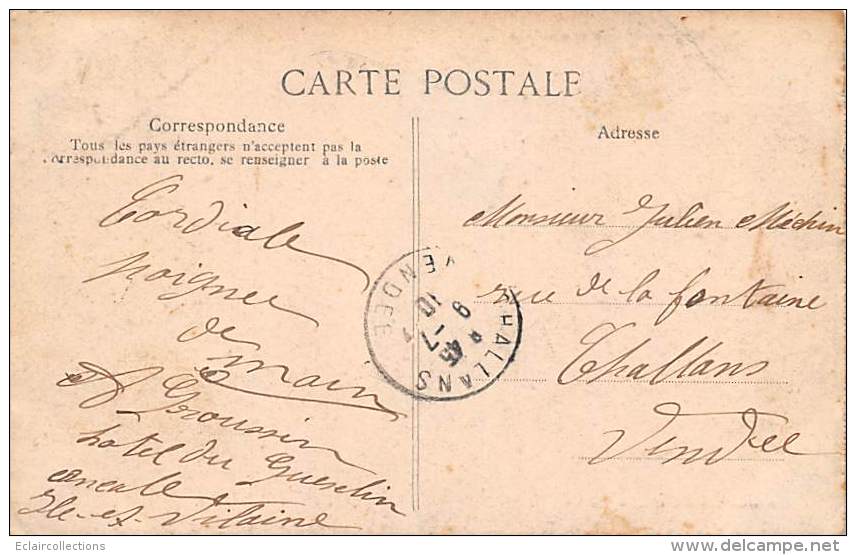 CARTE POSTALE
Correspondance
Tous les pays étrangers n'acceptent pas la
correspondance au recto, se renseigner à la poste
Adresse
Cordiale
poignee
de
main
A Groussin
hotel du Guesclin
cancale
Ile-et-Vilaine
Monsieur Julien Méchin
rue de la fontaine
Challans
Vendée
CHALLANS
VENDEE
Eclaircollections
delcampe.net